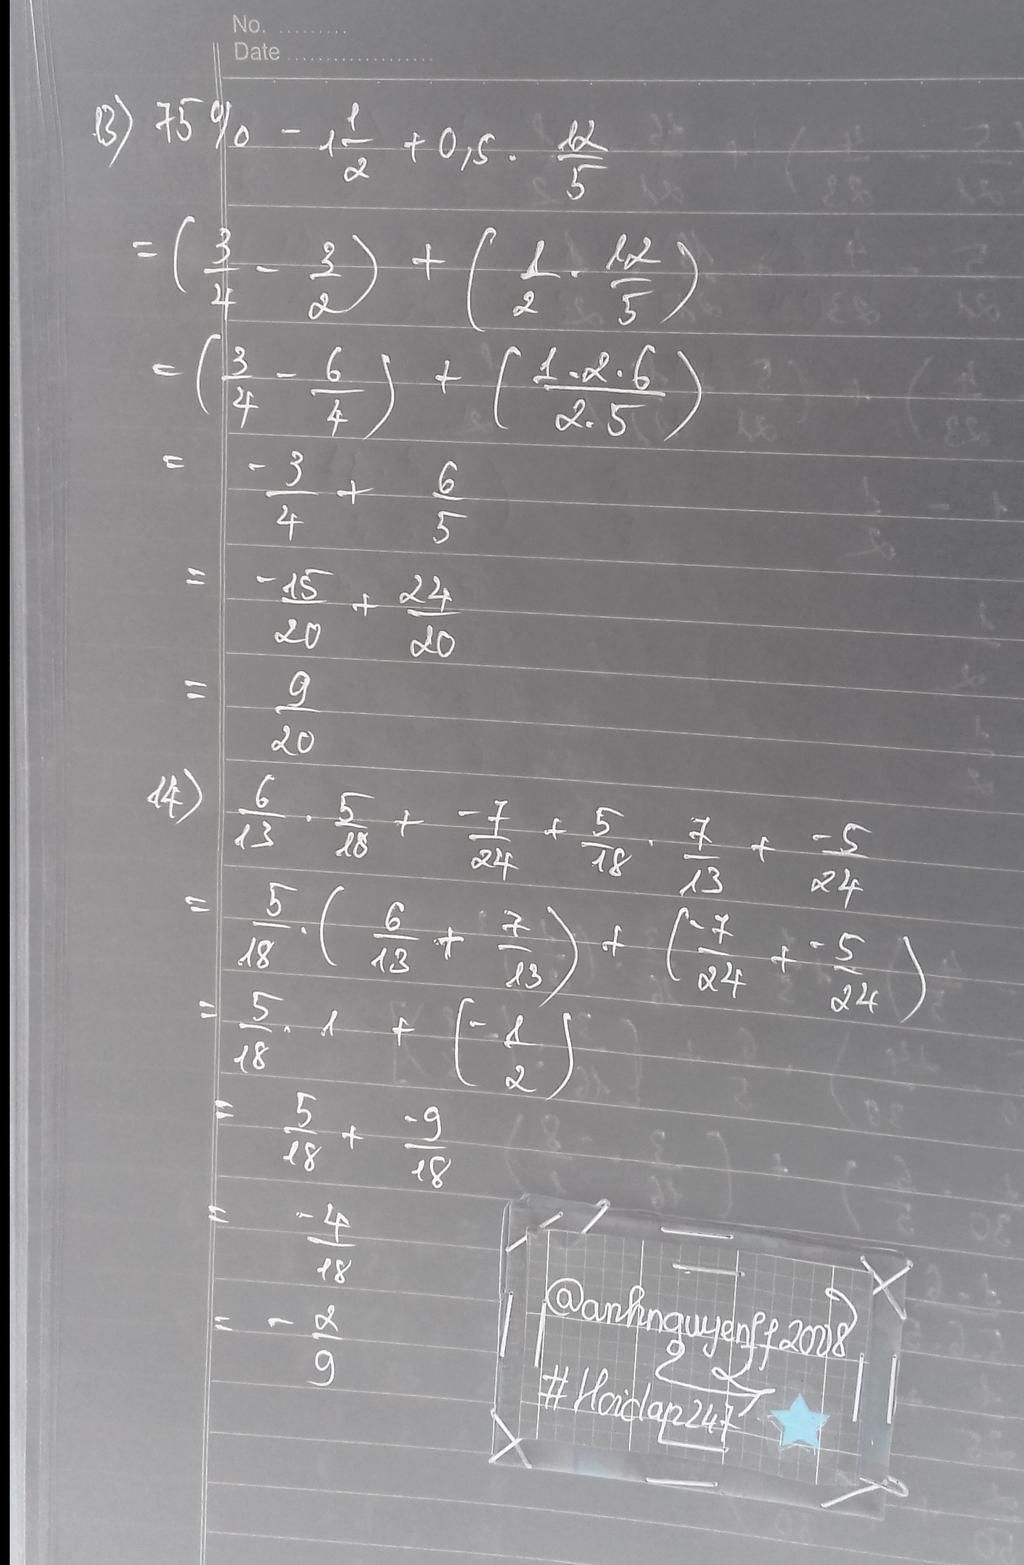 No. .........
Date ...................
13) 75% - 1 1/2 + 0,5 . 12/5
= (3/4 - 3/2) + (1/2 . 12/5)
= (3/4 - 6/4) + (1.2.6/2.5)
= -3/4 + 6/5
= -15/20 + 24/20
= 9/20
14) 6/13 . 5/18 + -7/24 + 5/18 . 7/13 + -5/24
= 5/18 . (6/13 + 7/13) + (-7/24 + -5/24)
= 5/18 . 1 + (-1/2)
= 5/18 + -9/18
= -4/18
= -2/9
@anhnguyenff2008
#Hoidap247